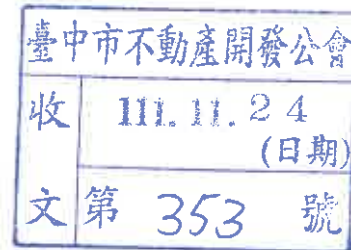 臺中市不動產開發公會
收 111.11.24
(日期)
文 第 353 號